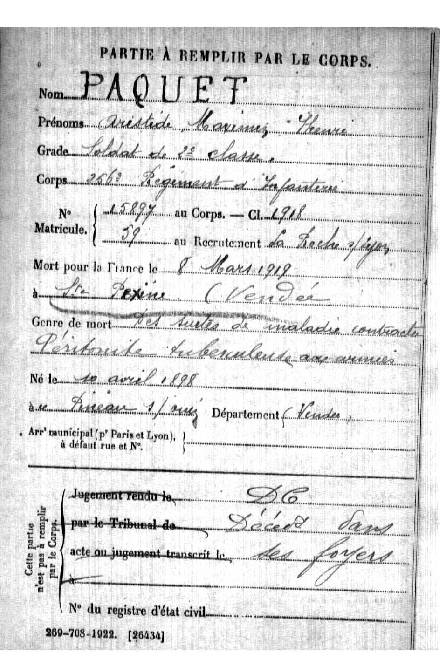 PARTIE À REMPLIR PAR LE CORPS.
Nom PAQUET
Prénoms Aristide, Maximin Henri
Grade Soldat de 2e classe.
Corps 256e Régiment d'Infanterie
N° Matricule. { 15897 au Corps. — Cl. 1918
59 au Recrutement La Roche s/Yon
Mort pour la France le 8 Mars 1919
à Ste Pexine (Vendée
Genre de mort des suites de maladie contractée
Péritonite tuberculeuse aux armées
Né le 10 avril 1898
à Département (Vendée)
Arrt municipal (pr Paris et Lyon),
à défaut rue et N°.
Cette partie n'est pas à remplir par le Corps.
Jugement rendu le DC
par le Tribunal de Décédé dans
acte ou jugement transcrit le ses foyers
à
N° du registre d'état civil
269-708-1922. [26434]